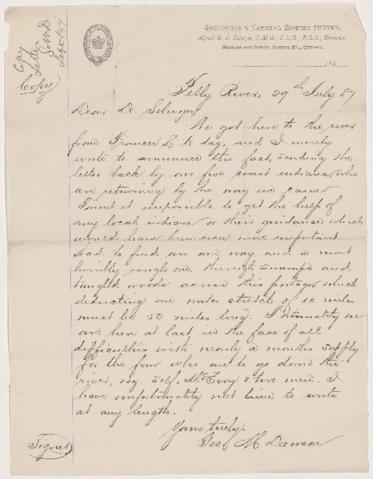 GEOLOGICAL & NATURAL HISTORY SURVEY.
Alfred R. C. Selwyn, C.M.G., L.L.D., F.R.S., Director.
MUSEUM AND OFFICE, SUSSEX ST., OTTAWA.
188
Copy
Letter
Copy
Pelly River, 29th July 87
Dear Dr. Selwyn,
We got here to the river
from Frances L. to day, and I merely
write to announce the fact, sending the
letter back by our five coast indians who
are returning by the way we came
Found it impossible to get the help of
any local indians or their guidance which
would have been even more important
Had to find our own way, and a most
horribly rough one, through swamps and
tangled woods across this portage which
deducting one water stretch of 10 miles
must be 50 miles long. Fortunately we
are here at last, in the face of all
difficulties with nearly a months supply
for the four who are to go down the
river, viz. Self, McEvoy & two men. I
have unfortunately not time to write
at any length.
Yours truly,
Signed
Geo. M. Dawson